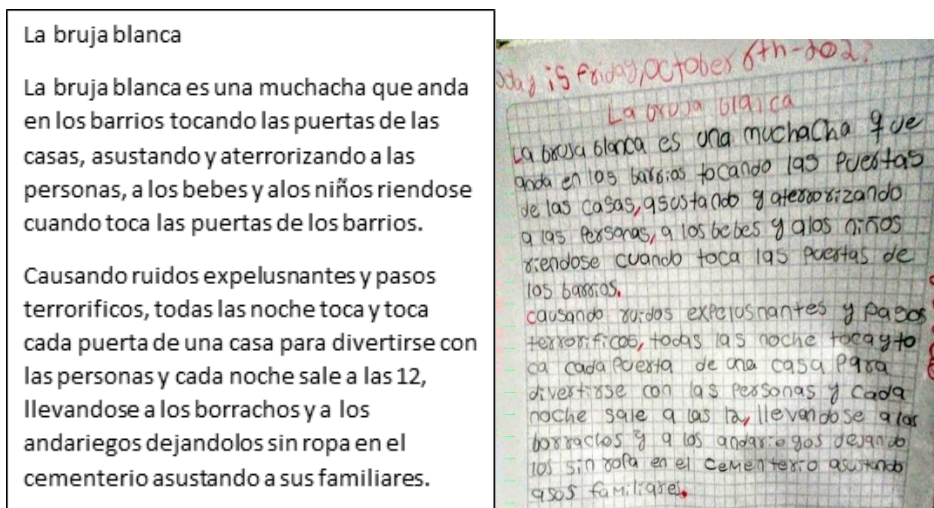 La bruja blanca
La bruja blanca es una muchacha que anda
en los barrios tocando las puertas de las
casas, asustando y aterrorizando a las
personas, a los bebes y alos niños riendose
cuando toca las puertas de los barrios.
Causando ruidos expelusnantes y pasos
terrorificos, todas las noche toca y toca
cada puerta de una casa para divertirse con
las personas y cada noche sale a las 12,
llevandose a los borrachos y a los
andariegos dejandolos sin ropa en el
cementerio asustando a sus familiares.
is Friday, October 6th-202
La bruja blanca
La bruja blanca es una muchacha que
anda en los barrios tocando las puertas
de las casas, asustando y aterrorizando
a las personas, a los bebes y alos niños
riendose cuando toca las puertas de
los barrios.
causando ruidos expelusnantes y pasos
terrorificos, todas las noche toca y to
ca cada puerta de una casa para
divertirse con las personas y cada
noche sale a las 12, llevandose a los
borrachos y a los andariegos dejando
los sin ropa en el cementerio asustando
a sus familiares.